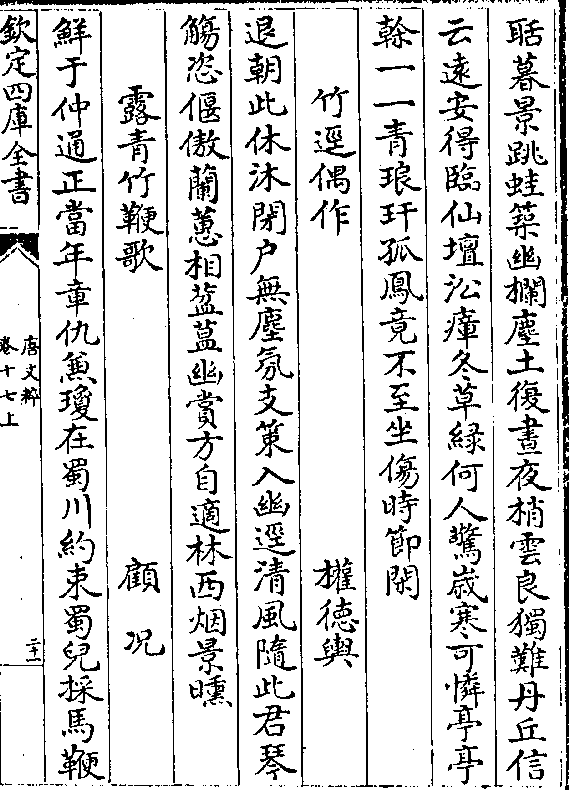 聒暮景跳蛙築幽攔塵土復晝夜梢雲良獨難丹丘信
云遠安得臨仙壇訟瘴冬草緑何人驚歳寒可憐亭亭
榦一一青琅玕孤鳳竟不至坐傷時節闌
竹逕偶作　權徳輿
退朝此休沐閉户無塵氛支策入幽逕清風隨此君琴
觴恣偃傲蘭蕙相葐蒀幽賞方自適林西烟景曛
露青竹鞭歌　顧况
鮮于仲通正當年章仇兼瓊在蜀川約束蜀兒採馬鞭
欽定四庫全書
唐文粹
卷十七上
二十一